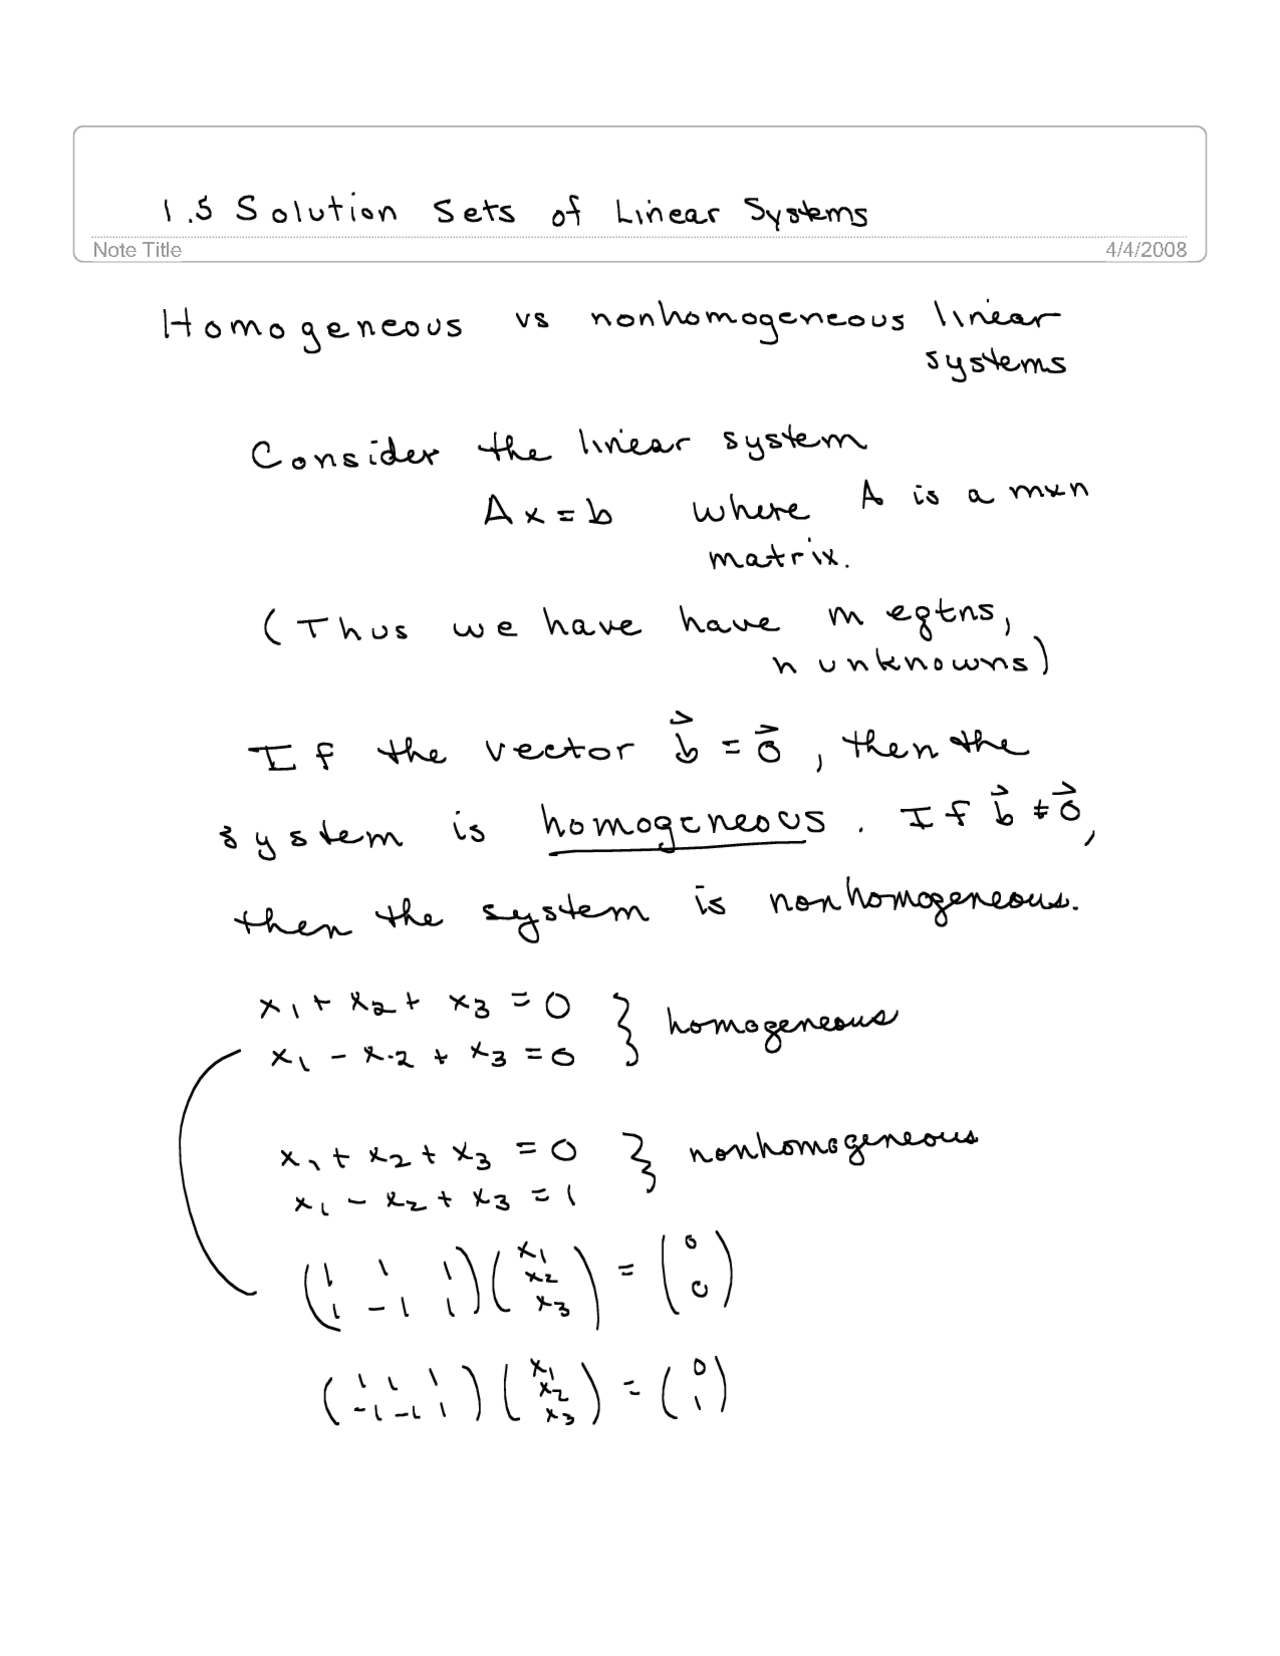 1.5 Solution Sets of Linear Systems
Note Title
4/4/2008
Homogeneous vs nonhomogeneous linear
systems
Consider the linear system
Ax = b where A is a mxn
matrix.
(Thus we have have m eqtns,
n unknowns)
If the vector b⃗ = 0⃗, then the
system is homogeneous. If b⃗ ≠ 0⃗,
then the system is nonhomogeneous.
x₁ + x₂ + x₃ = 0 } homogeneous
x₁ - x₂ + x₃ = 0
x₁ + x₂ + x₃ = 0 } nonhomogeneous
x₁ - x₂ + x₃ = 1
(1 1 1) (x₁) = (0)
(1 -1 1) (x₂) (0)
(x₃)
(1 1 1) (x₁) = (0)
(-1 -1 1) (x₂) (1)
(x₃)